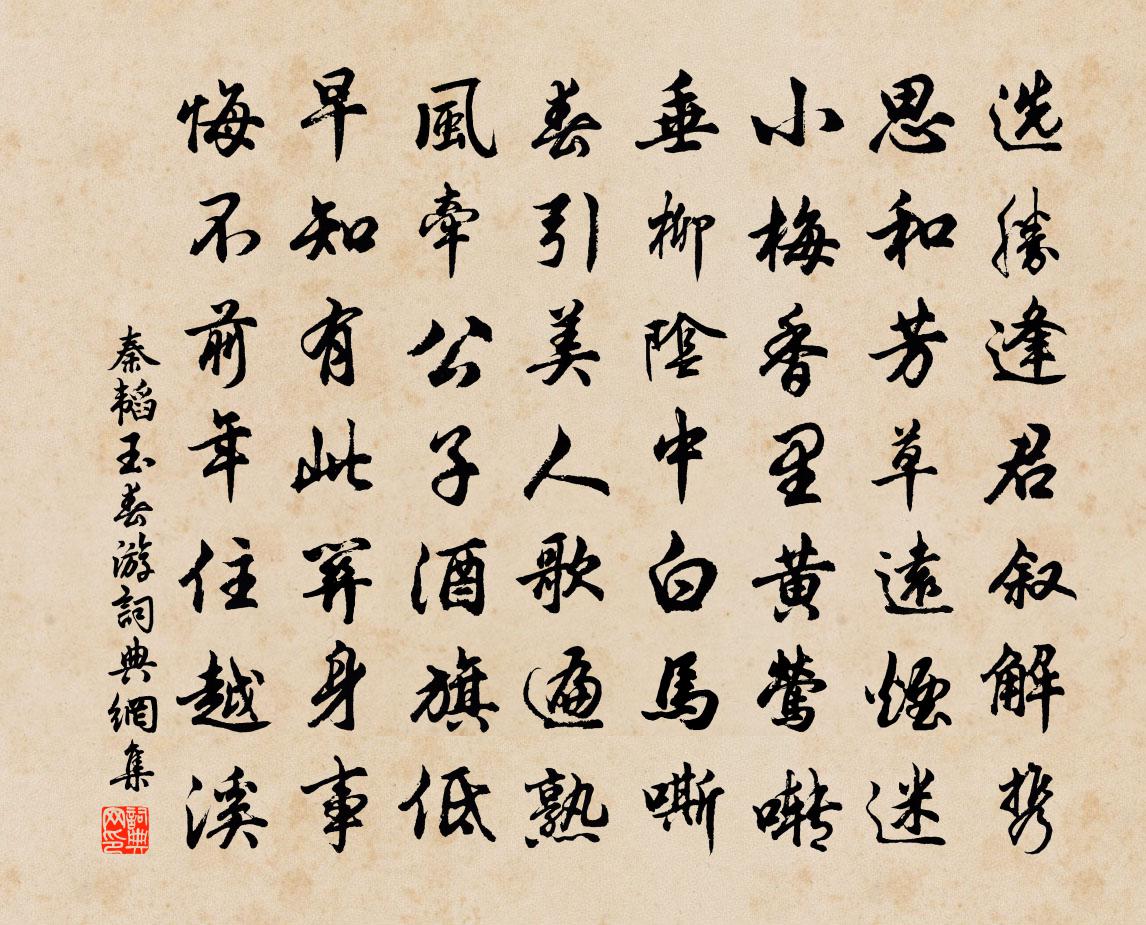 选勝逢君叙解携
思和芳草遠煙迷
小梅香里黄鶯囀
垂柳陰中白馬嘶
春引美人歌遍熟
風牽公子酒旗低
早知有此關身事
悔不前年住越溪
秦韬玉春游詞典網集
詞典网印